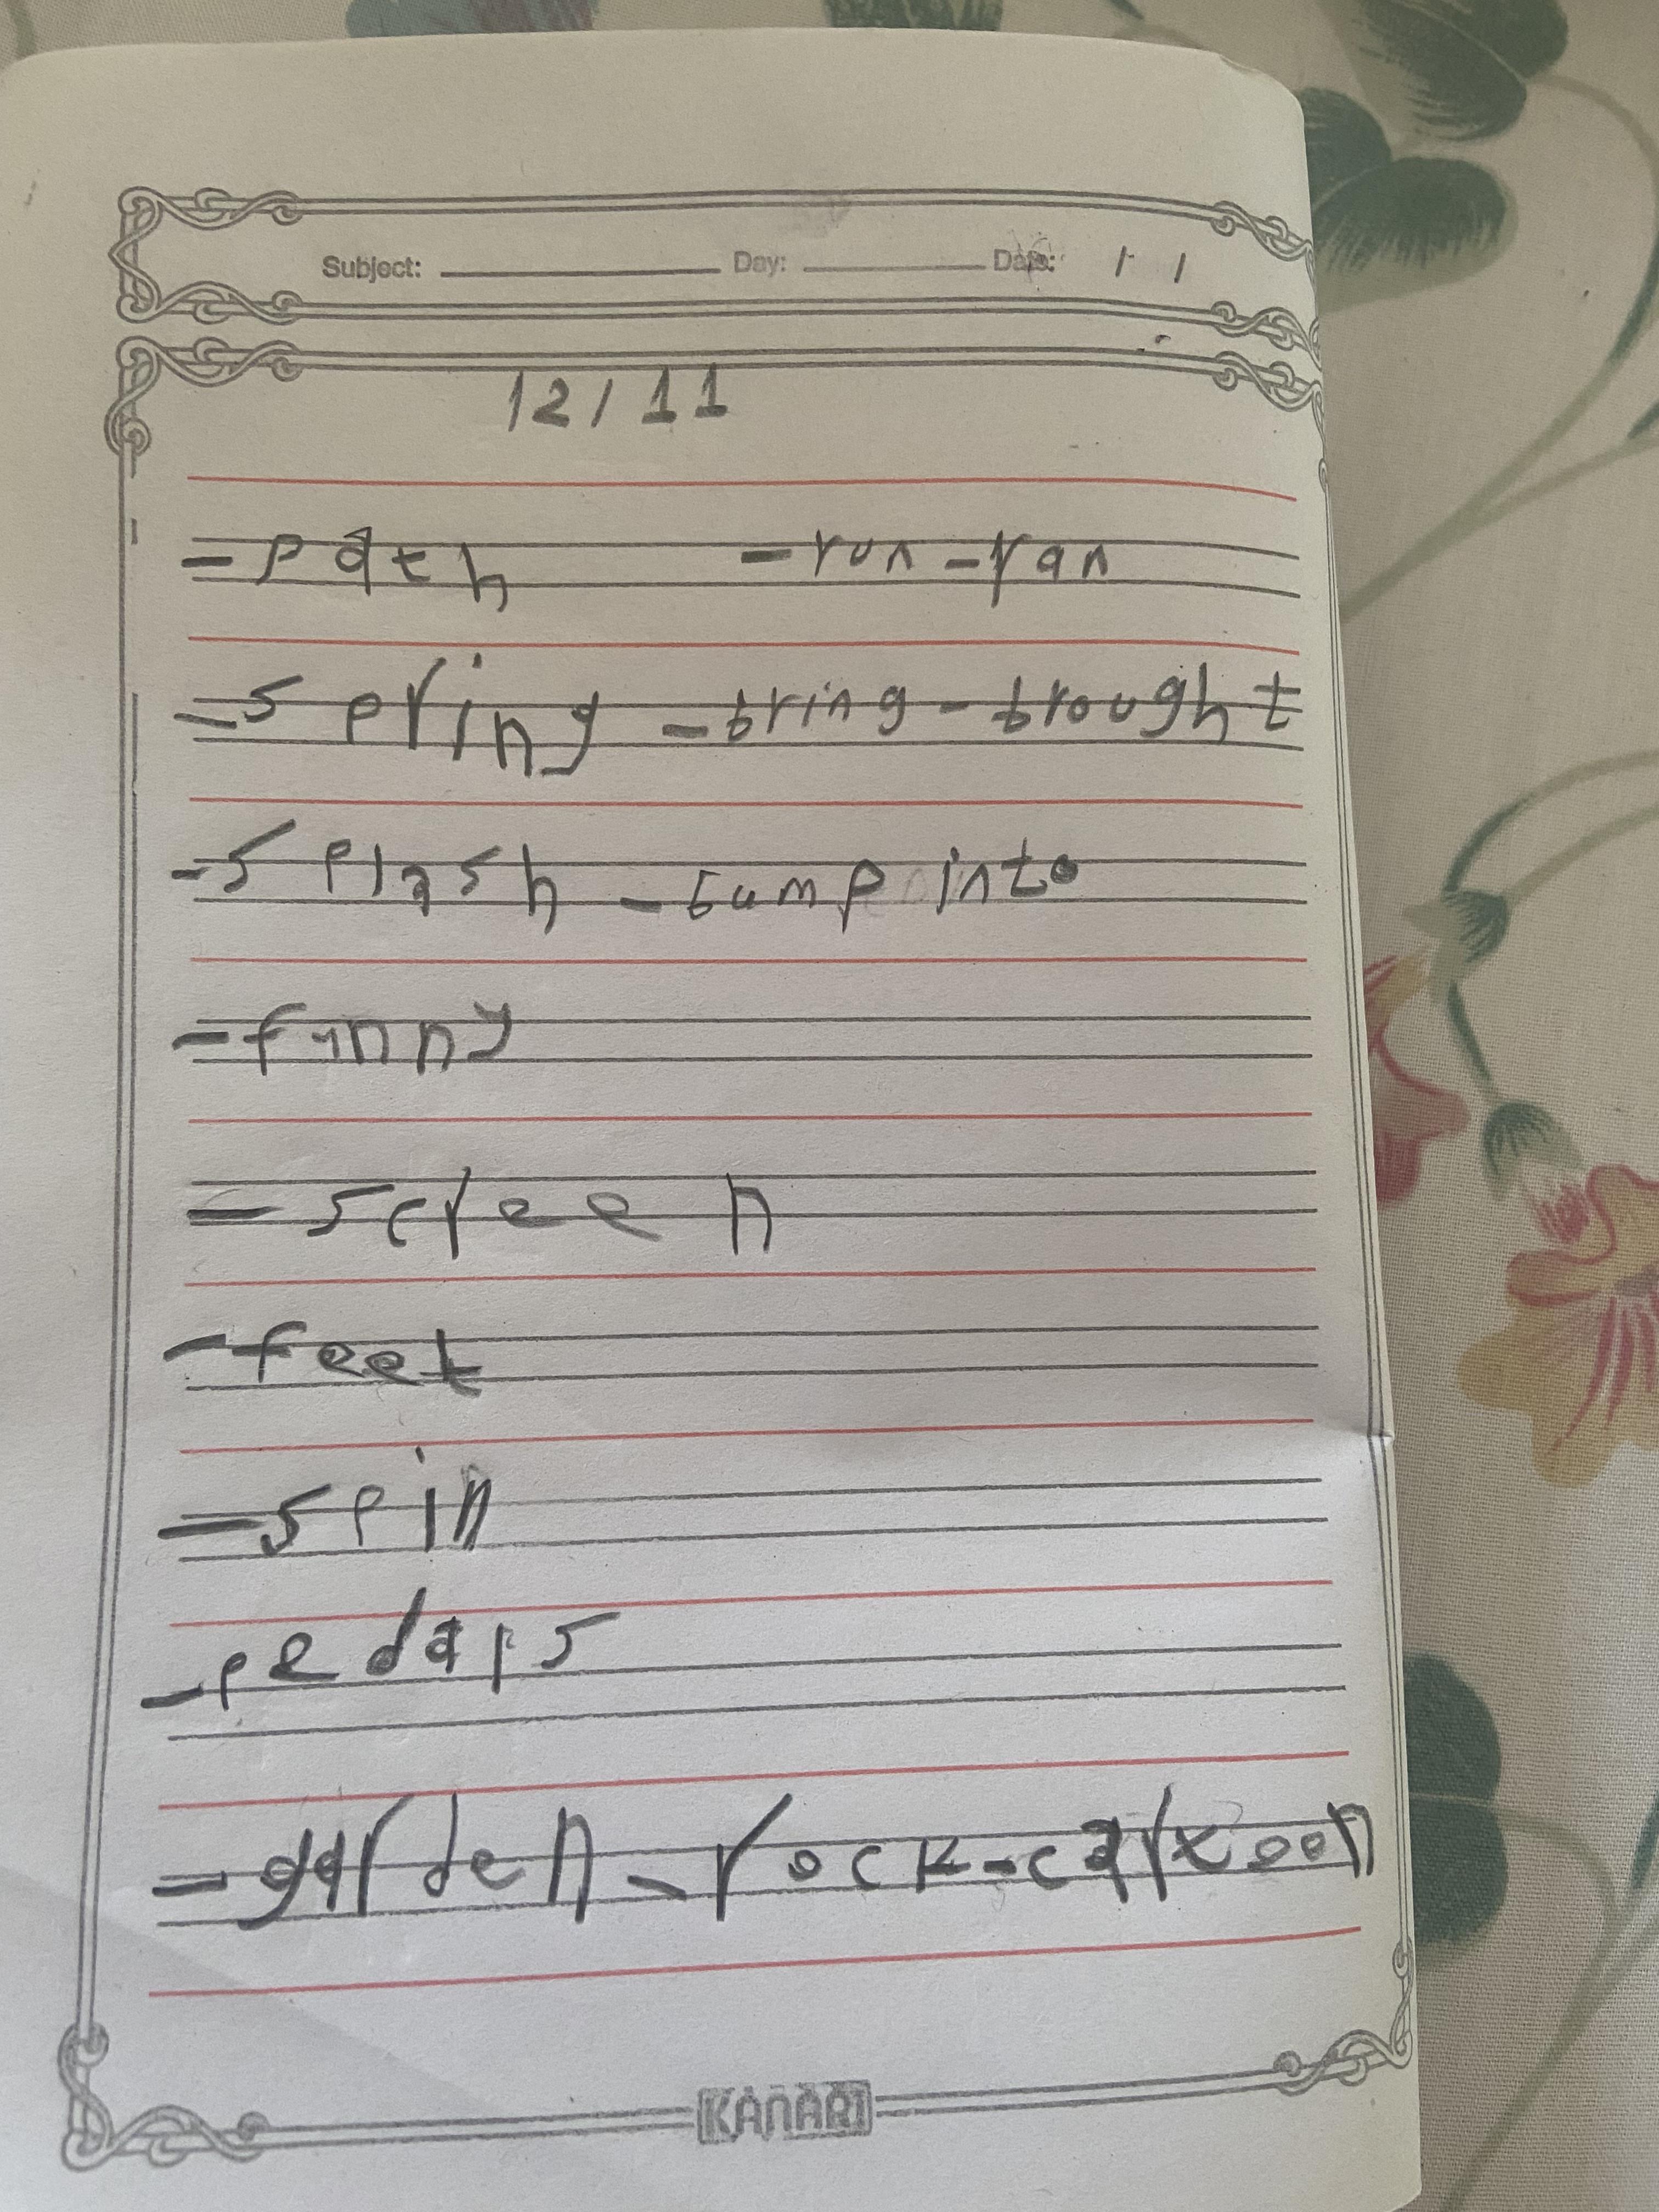 Subject: Day: Date: / /
12/11
- path - run - ran
- spring - bring - brought
- splash - bump into
- funny
- screen
- feet
- spin
- pedals
- garden - rock - cartoon
KANARI